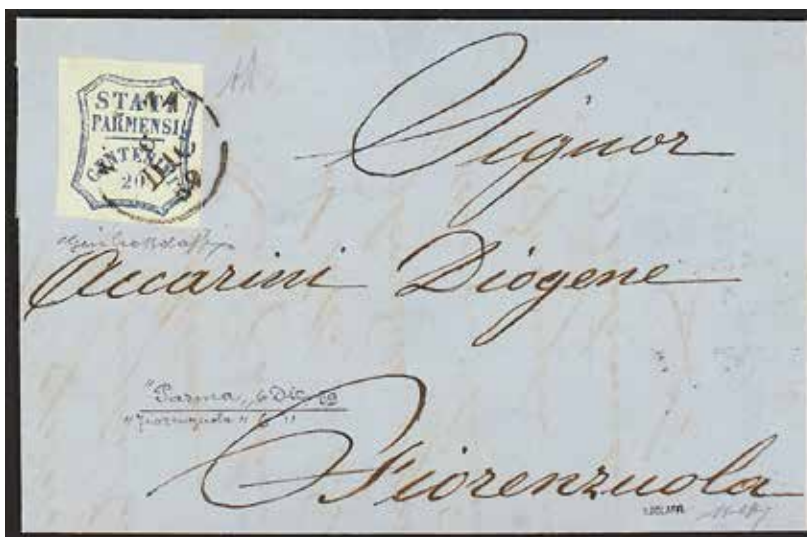 STATI
PARMENSI
CENTESIMI
20
6
DIC
59
Signor
Accarini Diogene
"Parma„ 6 Dic 59
"Fiorenzuola" 6 "
Fiorenzuola